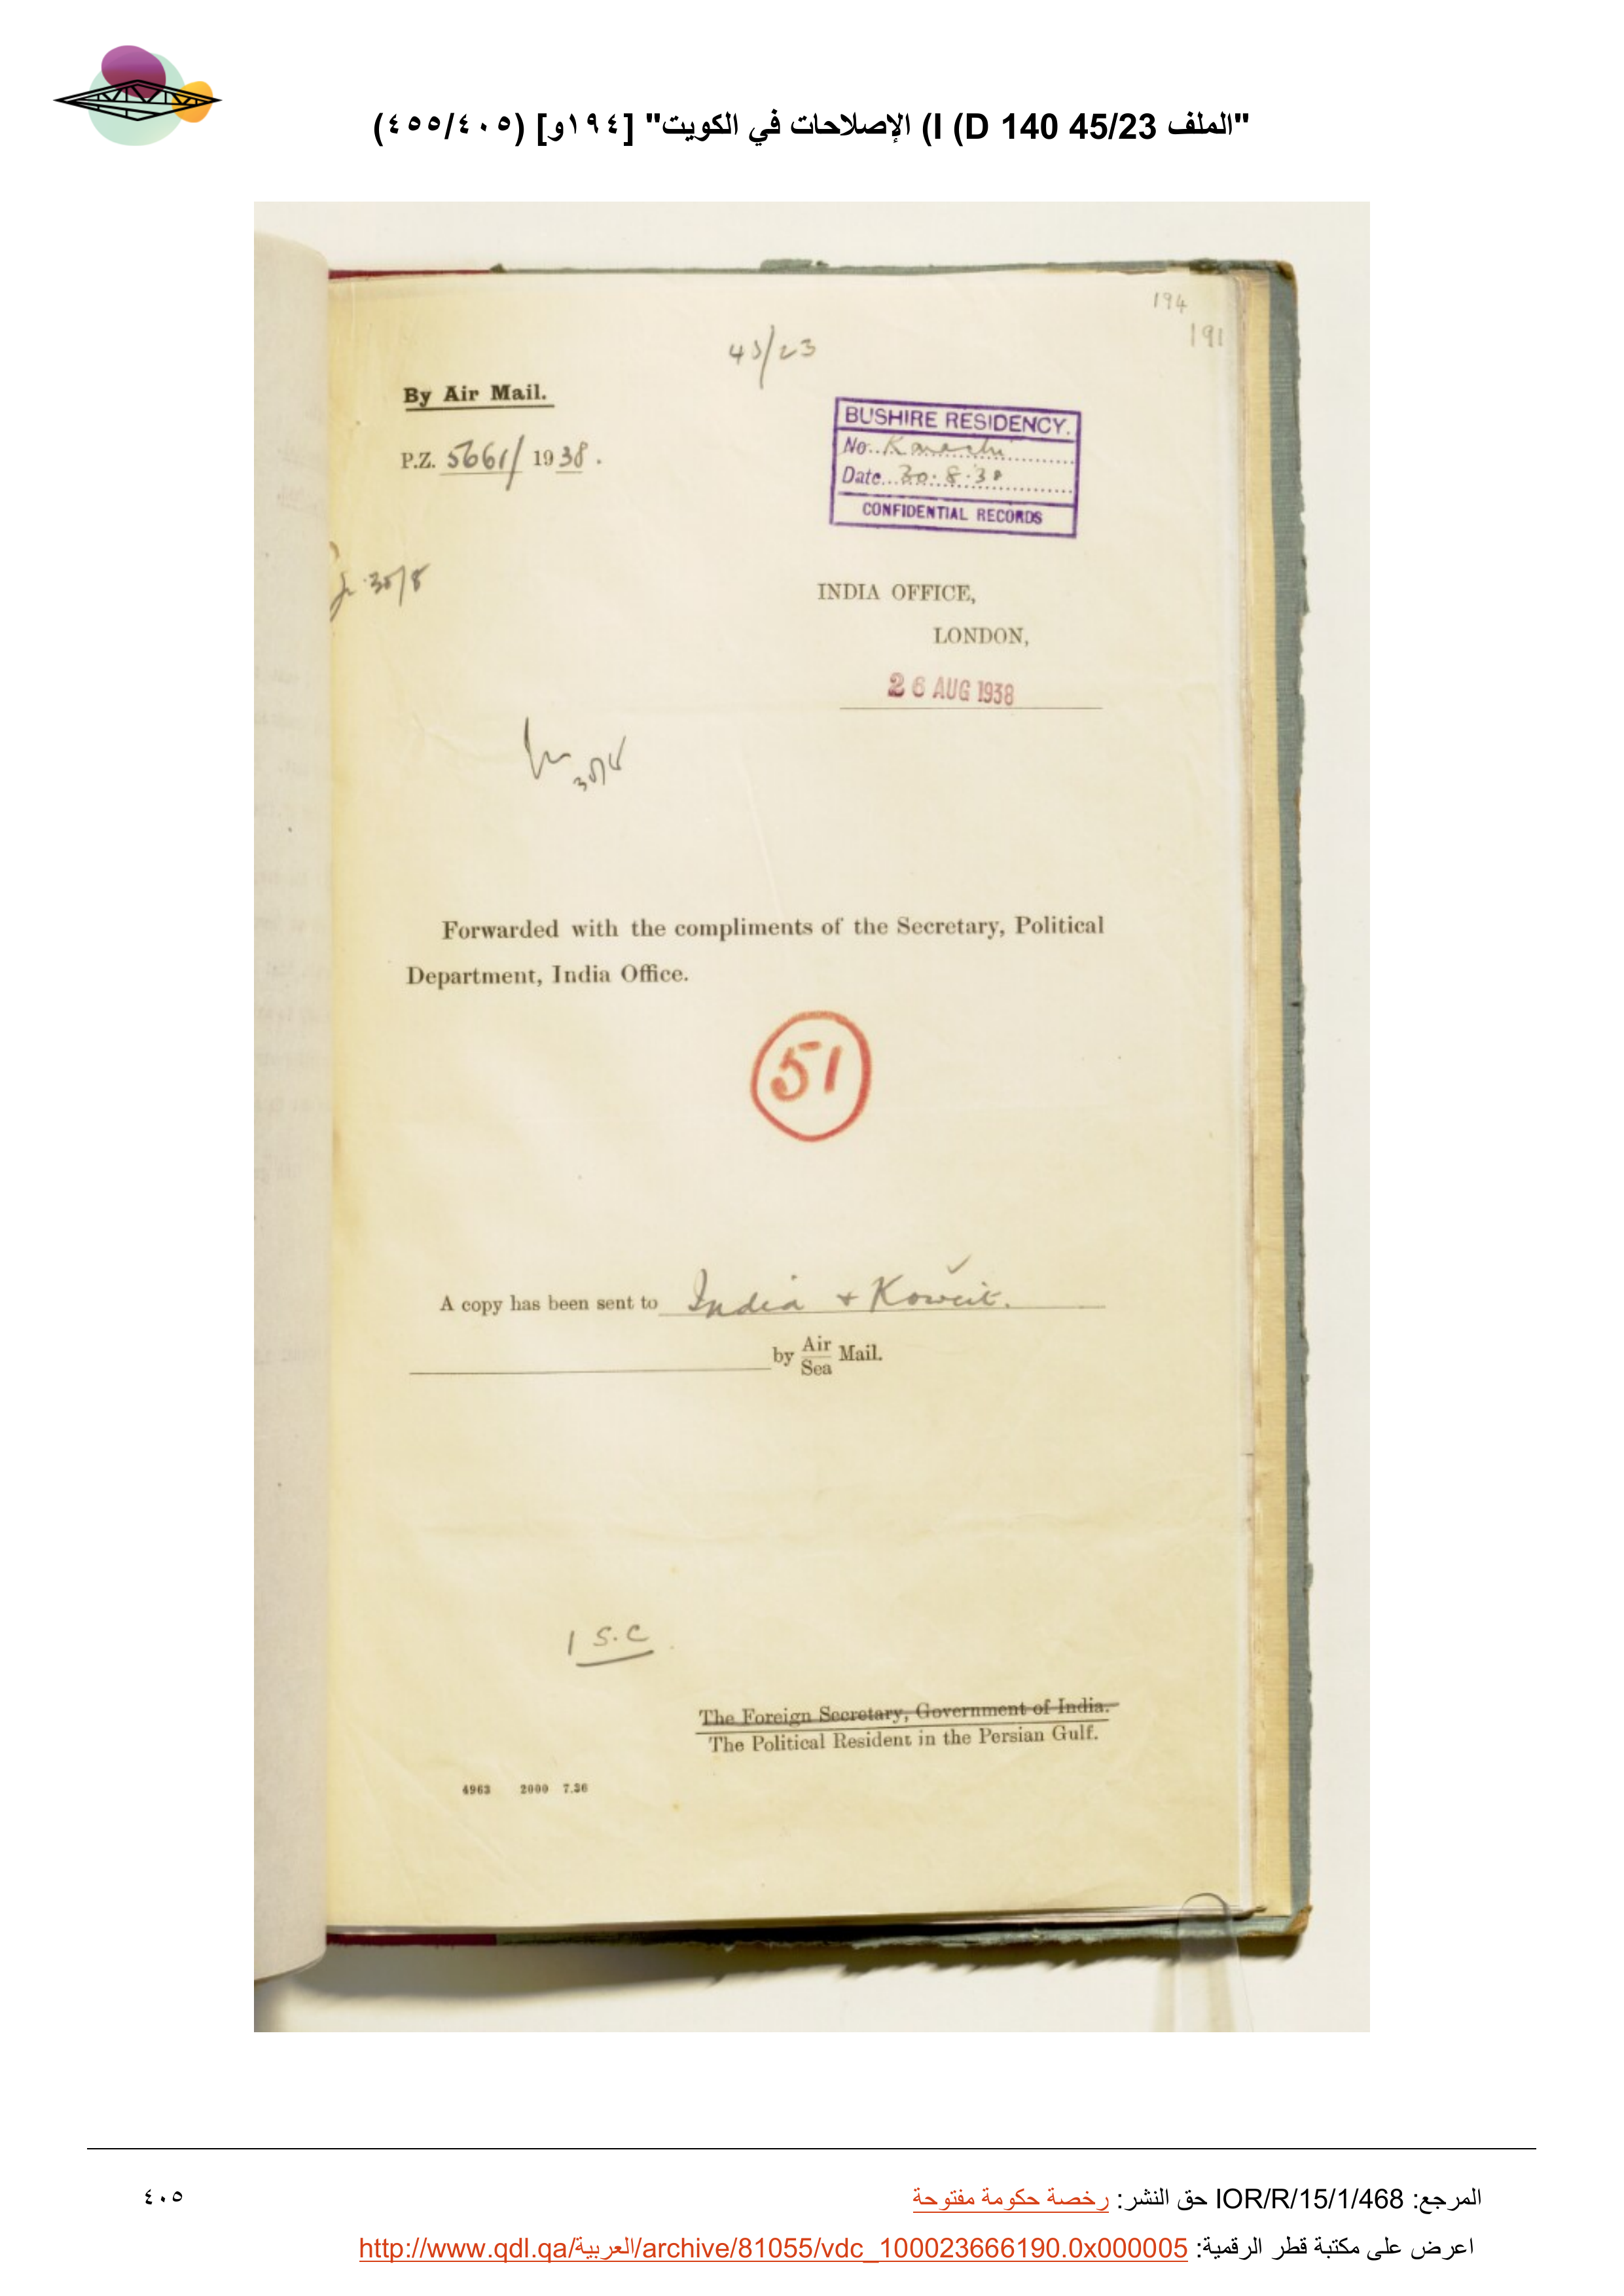 "الملف 45/23 I (D 140) الإصلاحات في الكويت" [١٩٤و] (٤٥٥/٤٠٥)
194
191
45/23
By Air Mail.
P.Z. 5661/ 1938.
BUSHIRE RESIDENCY.
No. Karachi
Date 30.8.38
CONFIDENTIAL RECORDS
30/8
INDIA OFFICE,
LONDON,
26 AUG 1938
30/8
Forwarded with the compliments of the Secretary, Political
Department, India Office.
51
A copy has been sent to India + Koweit.
by Air/Sea Mail.
1 S.C.
The Foreign Secretary, Government of India.
The Political Resident in the Persian Gulf.
4963 2000 7.36
المرجع: IOR/R/15/1/468 حق النشر: رخصة حكومة مفتوحة
٤٠٥
اعرض على مكتبة قطر الرقمية: http://www.qdl.qa/العربية/archive/81055/vdc_100023666190.0x000005